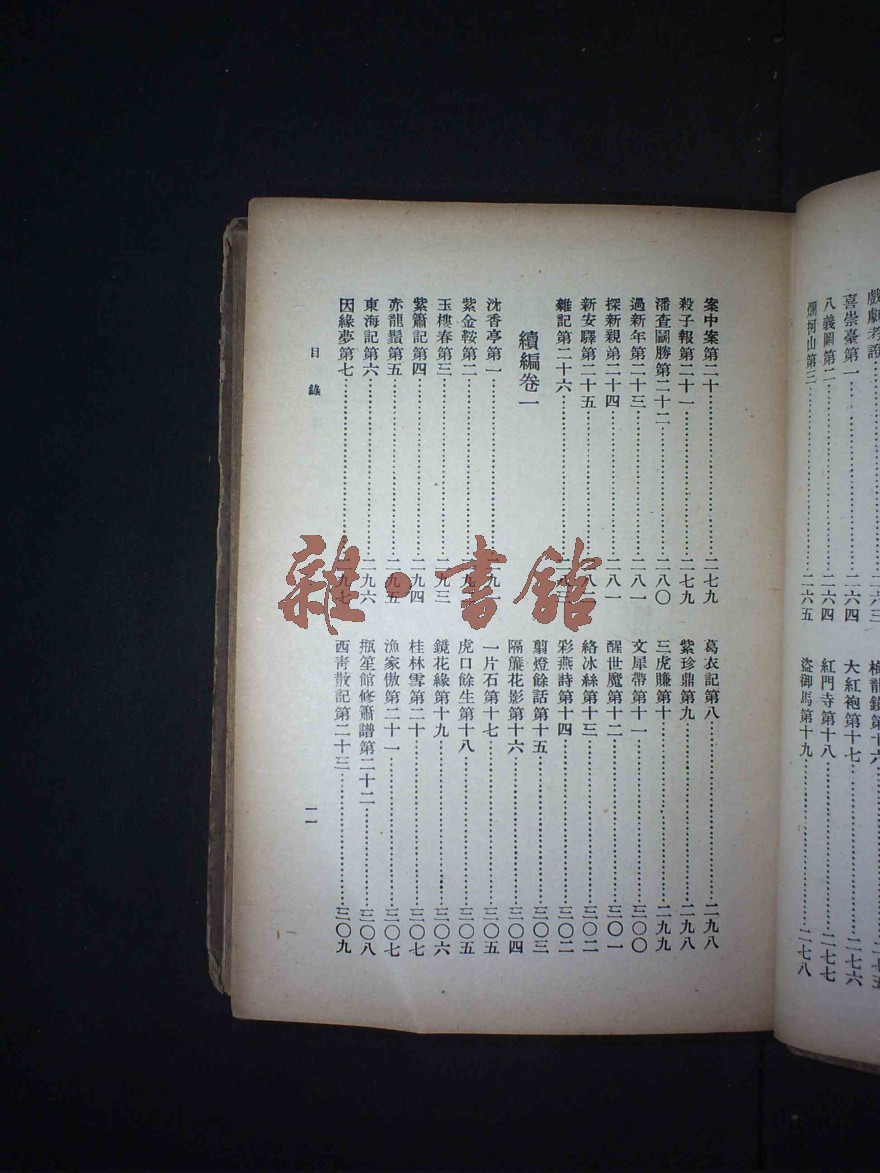 戲劇考證
喜崇臺第一…………二六三
八義圖第二…………二六四
爛柯山第三…………二六五
梅龍鎮第十六…………二七五
大紅袍第十七…………二七六
紅門寺第十八…………二七七
盜御馬第十九…………二七八
案中案第二十…………二七九
殺子報第二十一…………二七九
潘查鬭勝第二十二…………二八〇
過新年第二十三…………二八一
探新親弟二十四…………二八一
新安驛第二十五…………二八二
雜記第二十六…………二八三
續編卷一
沈香亭第一…………二九一
紫金鞍第二…………二九二
玉樓春第三…………二九三
紫簫記第四…………二九四
赤龍鬚第五…………二九五
東海記第六…………二九六
因緣夢第七…………二九七
葛衣記第八…………二九八
紫珍鼎第九…………二九八
三虎賺第十…………二九九
文犀帶第十一…………三〇〇
醒世魔第十二…………三〇一
絡冰絲第十三…………三〇二
彩燕詩第十四…………三〇二
翦燈餘話第十五…………三〇三
隔簾花影第十六…………三〇四
一片石第十七…………三〇五
虎口餘生第十八…………三〇五
鏡花緣第十九…………三〇六
桂林雪第二十…………三〇七
漁家傲第二十一…………三〇七
瓶笙館修簫譜第二十二…………三〇八
西青散記第二十三…………三〇九
目錄
一一
雜·書館